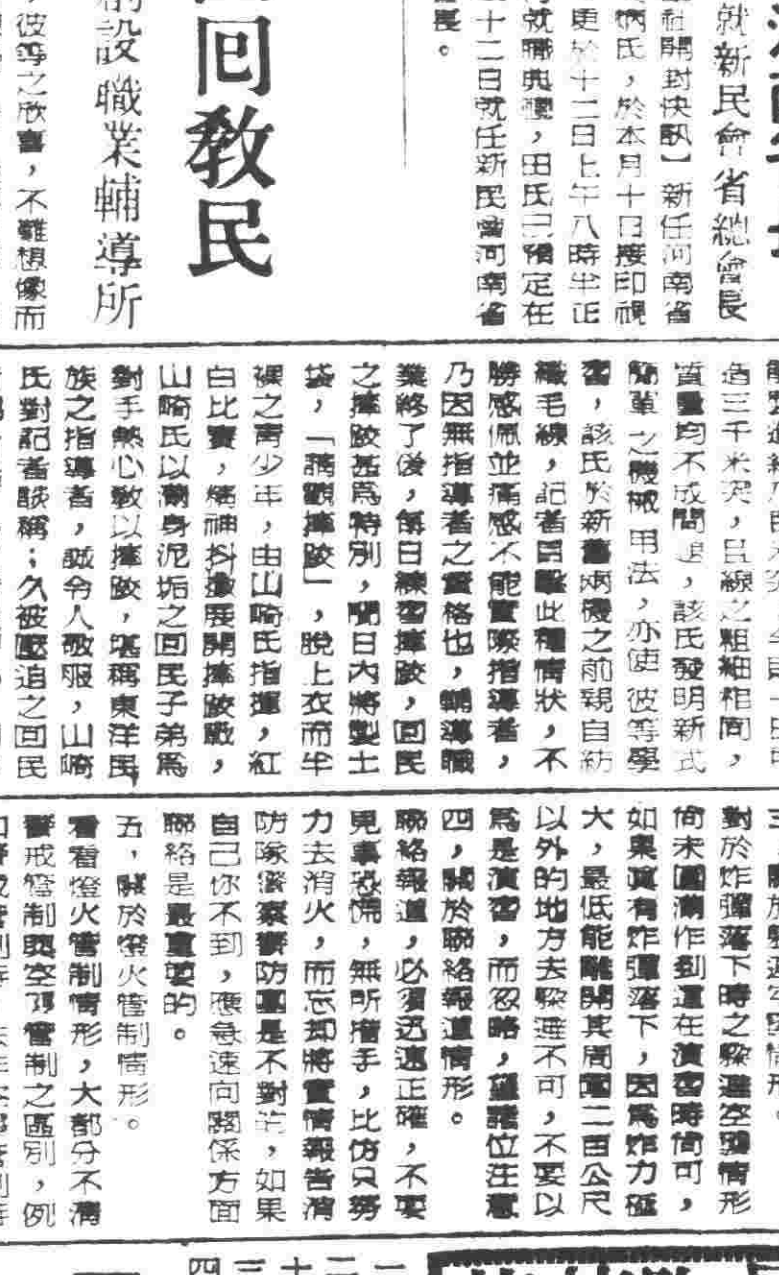 就新民會省總會長
社開封快訊】新任河南省
病氏，於本月十日接印視
更於十二日上午八時半正
就職典禮，田氏已預定在
十二日就任新民會河南省
長。
回教民
創設職業輔導所
，彼等之欣喜，不難想像而
造三千米突，且線之粗細相同，
質量均不成問題，該氏發明新式
簡單之機械用法，亦使彼等學
習，該氏於新舊兩機之前親自紡
織毛線，記者目擊此種情狀，不
勝感佩並痛感不能實際指導者，
乃因無指導者之資格也，輔導職
業終了後，每日練習摔跤，回民
之摔跤甚為特別，間日內將製土
袋，「請觀摔跤」，脫上衣而半
裸之青少年，由山崎氏指揮，紅
白比賽，精神抖擻展開摔跤戰，
山崎氏以滿身泥垢之回民子弟為
對手熱心教以摔跤，堪稱東洋民
族之指導者，誠令人敬服，山崎
氏對記者談稱；久被壓迫之回民
對於炸彈落下時之躲避空襲情形
尚未圓滿作到這在演習時尚可，
如果真有炸彈落下，因為炸力極
大，最低能離開其周圍二百公尺
以外的地方去躲避不可，不要以
為是演習，而忽略，望諸位注意
四，關於聯絡報道情形。
聯絡報道，必須迅速正確，不要
見事恐慌，無所措手，比仿只努
力去消火，而忘却將實情報告消
防隊警察警防團是不對的，如果
自己你不到，應急速向關係方面
聯絡是最重要的。
五，關於燈火管制情形。
看看燈火管制情形，大部分不清
警戒管制與空襲管制之區別，例
一二十三四